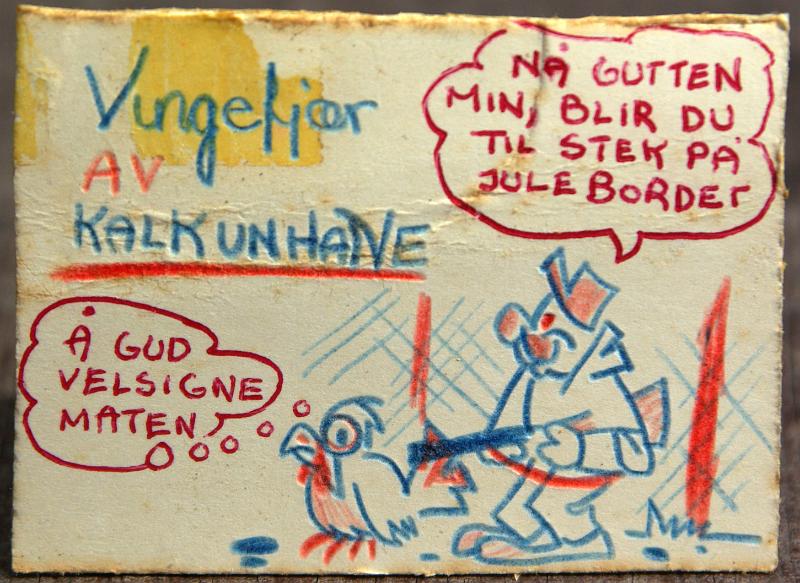 Vingefjær
AV
KALKUNHANE
NÅ GUTTEN
MIN, BLIR DU
TIL STEK PÅ
JULEBORDET
Å GUD
VELSIGNE
MATEN,